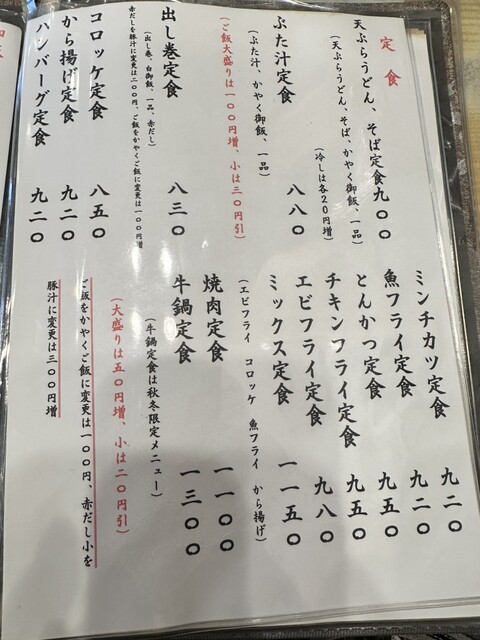 定食
天ぷらうどん、そば定食九〇〇
(天ぷらうどん、そば、かやく御飯、一品)
(冷しは各20円増)
ぶた汁定食 八八〇
(ぶた汁、かやく御飯、一品)
(ご飯大盛りは一〇〇円増、小は三〇円引)
出し巻定食 八三〇
(出し巻、白御飯、一品、赤だし)
赤だしを豚汁に変更は二〇〇円、ご飯をかやくご飯に変更は一〇〇円増
コロッケ定食 八五〇
から揚げ定食 九二〇
ハンバーグ定食 九二〇
ミンチカツ定食 九二〇
魚フライ定食 九二〇
とんかつ定食 九五〇
チキンフライ定食 九五〇
エビフライ定食 九八〇
ミックス定食 一一五〇
(エビフライ コロッケ 魚フライ から揚げ)
焼肉定食 一一〇〇
牛鍋定食 一三〇〇
(牛鍋定食は秋冬限定メニュー)
(大盛りは五〇円増、小は二〇円引)
ご飯をかやくご飯に変更は一〇〇円、赤だし小を
豚汁に変更は三〇〇円増